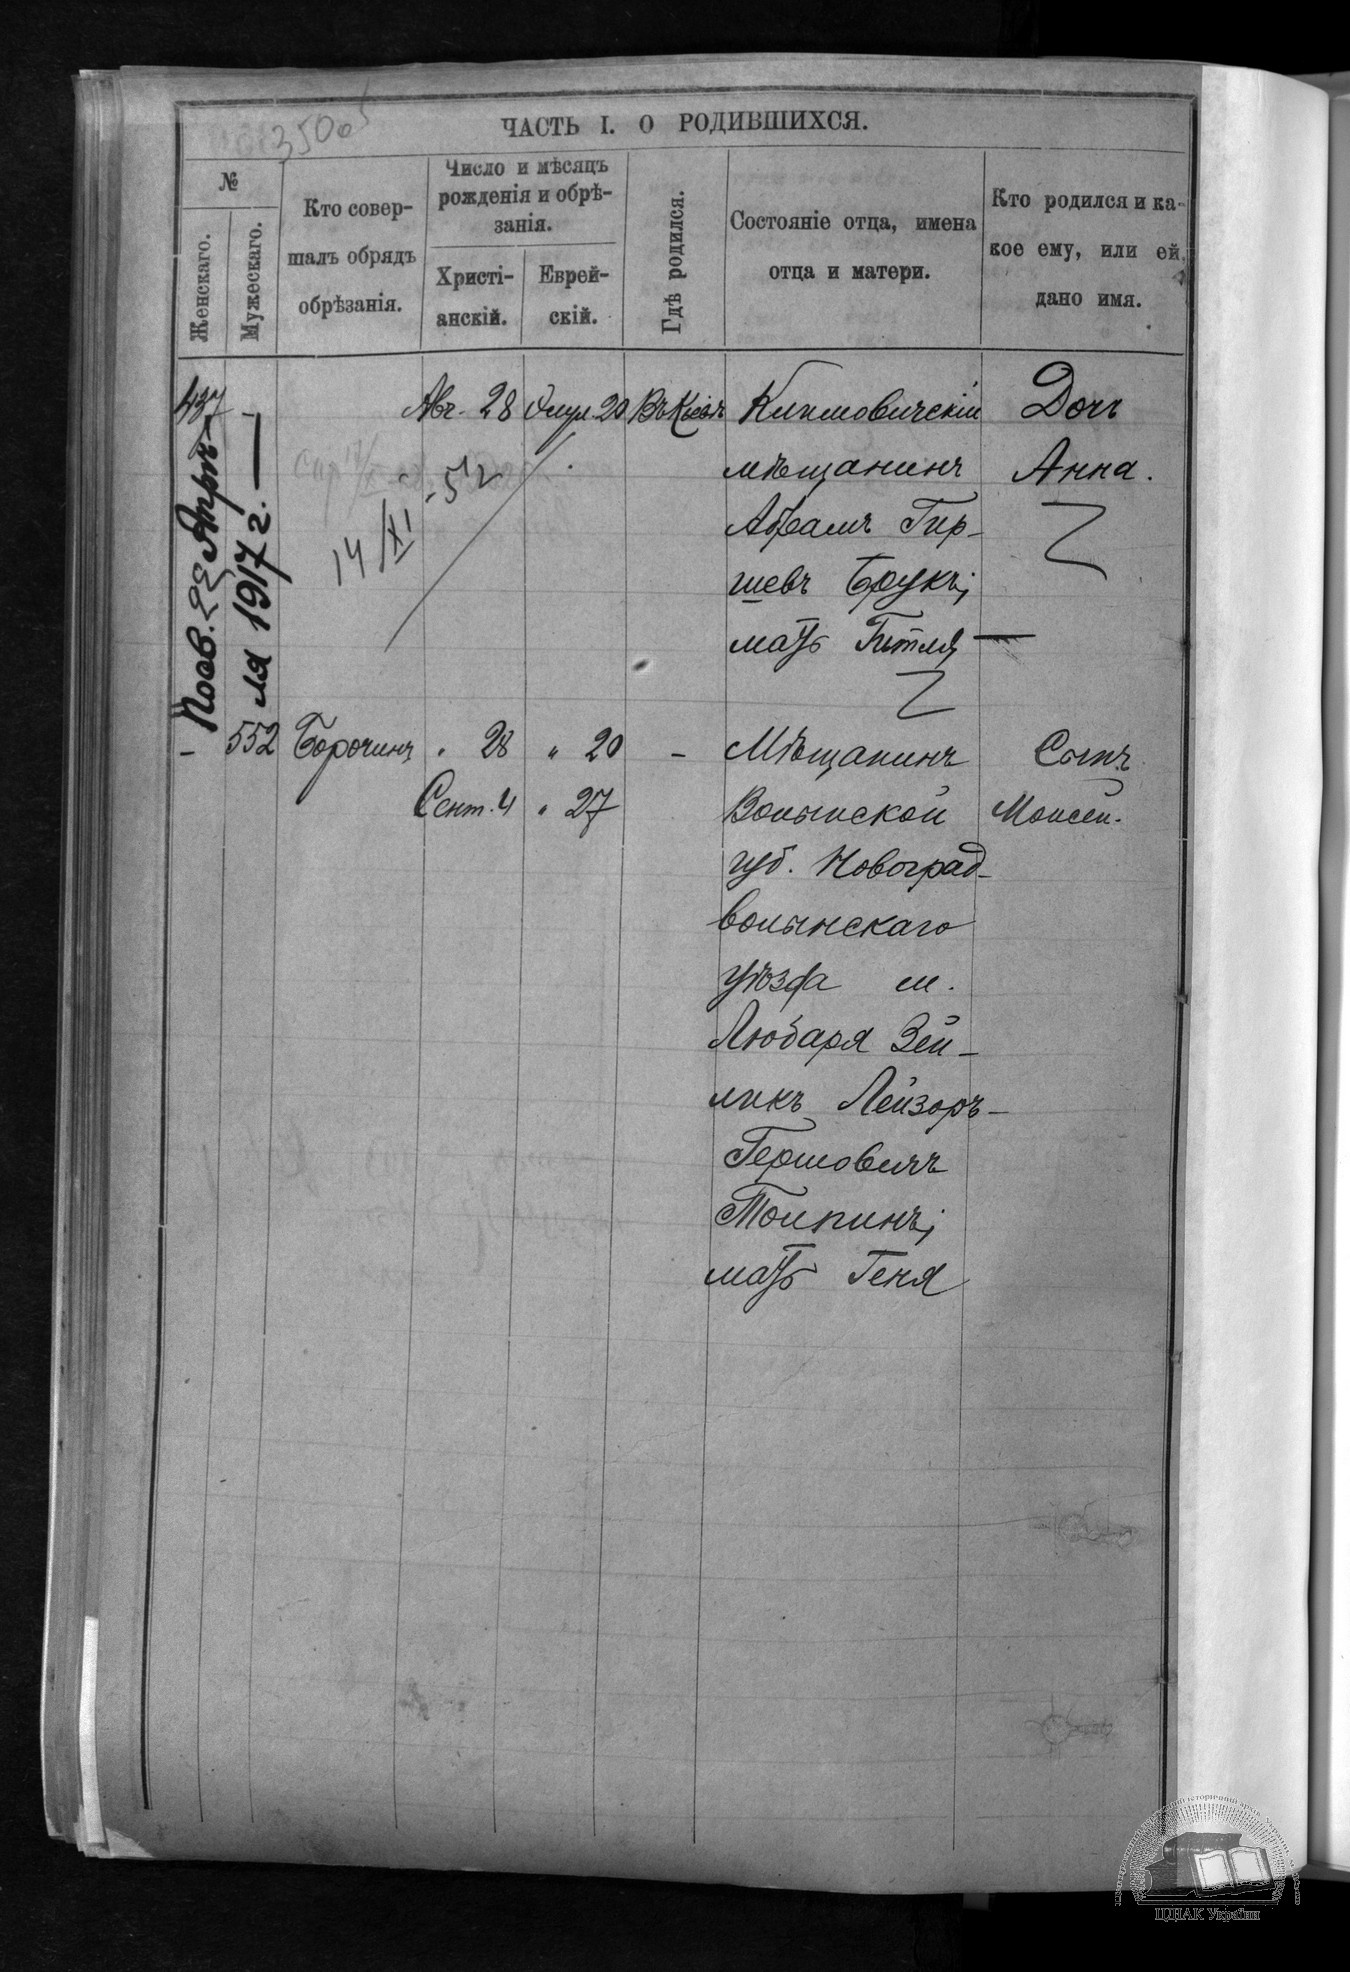 ЧАСТЬ I. О РОДИВШИХСЯ.
№
Женскаго.
Мужескаго.
Кто совер-
шалъ обрядъ
обрѣзанія.
Число и мѣсяцъ
рожденія и обрѣ-
занія.
Христі-
анскій.
Еврей-
скій.
Гдѣ родился.
Состояніе отца, имена
отца и матери.
Кто родился и ка-
кое ему, или ей
дано имя.
437 - Авг. 28 Элул. 20 Въ Кіевѣ
Климовичскій
мѣщанинъ
Абрамъ Гир-
шевъ Брукъ;
мать Гитля
Дочь
Анна.
14/XI - 52
ля 1917 г. —
- 552 Борочинъ " 28 " 20 -
Сент. 4 " 27
Мѣщанинъ
Волынской
губ. Новоград-
волынскаго
уѣзда м.
Любаря Зей-
ликъ Лейзоръ-
Гершовичъ
Толпинъ;
мать Геня
Сынъ
Моисей.
ЦДІАК України